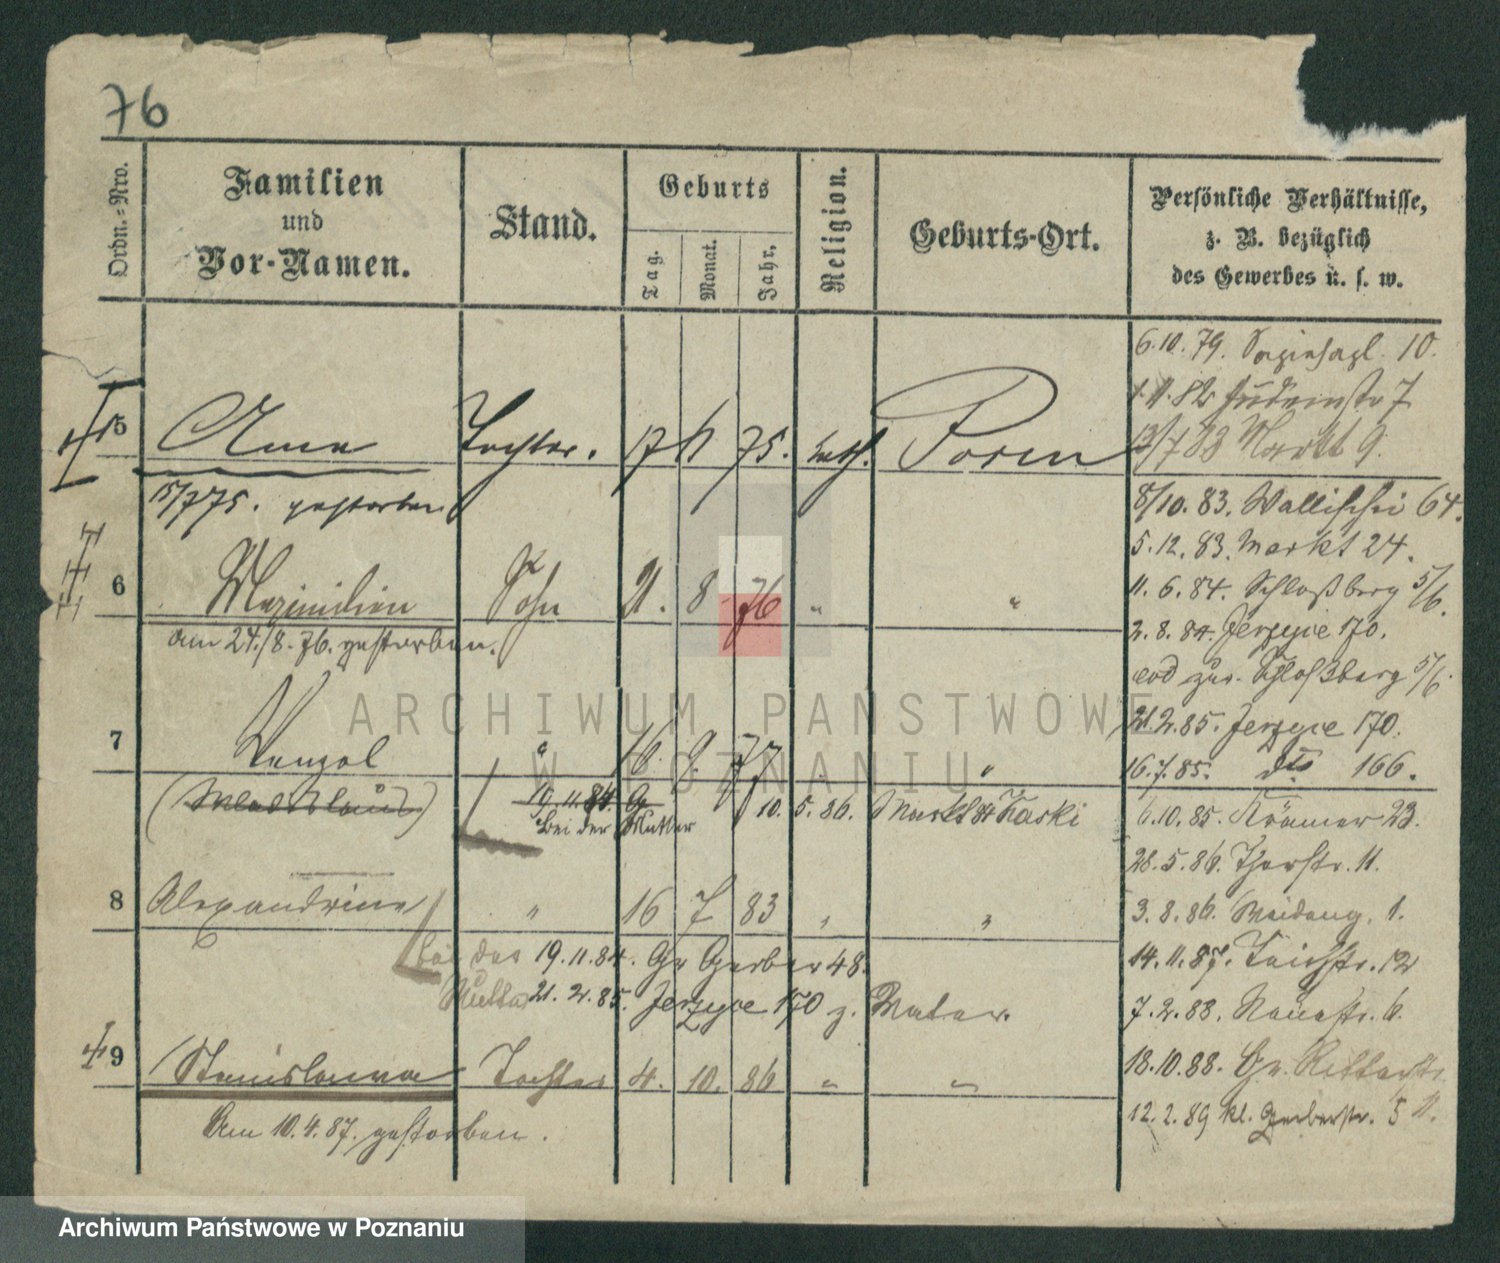 76
Ordn.=Nro.
Familien
und
Vor-Namen.
Stand.
Geburts
Tag.
Monat.
Jahr.
Religion.
Geburts-Ort.
Persönliche Verhältnisse,
z. B. bezüglich
des Gewerbes u. s. w.
6.10.79. 10.
82 7
13/7 83 Markt 9.
15 Anna Tochter. 17 75. kath. Posen
15/7 75. gestorben
8/10. 83. Wallischei 64.
5.12.83. Markt 24.
6 Maximilian Sohn 21. 8 76 "
11. 6. 84. Schloßberg 5/6.
am 24./8. 76. gestorben.
2. 8. 84. Jerzyce 170.
eod zur. Schloßberg 5/6.
21.2.85. Jerzyce 170.
7 Wenzel " 16. 9. 77 "
16.7.85. dto 166.
(Wladislaus) 19.11.84. Gr
Bei der Mutter 10. 5. 86. Markt 84
6.10.85. Krämer 23.
28.5.86. Thorstr. 11.
8 Alexandrine " 16 7 83 " "
3. 8. 86. 1.
bei der 19.11.84. Gr Gerber 48.
14.11.87. Teichstr. 12
Mutter 21. 2. 85. Jerzyce 170 z. Vater.
7. 2. 88. Neuestr. 6.
9 Stanislawa Tochter 4. 10. 86 " "
18.10.88. Gr. Ritterstr.
12.2.89 kl. Gerberstr. 5
Am 10.4.87. gestorben.
ARCHIWUM PAŃSTWOWE
W POZNANIU
Archiwum Państwowe w Poznaniu